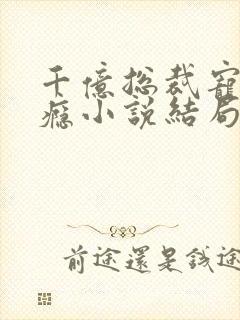 千億总裁寵
癮小說結局
前途還是錢途